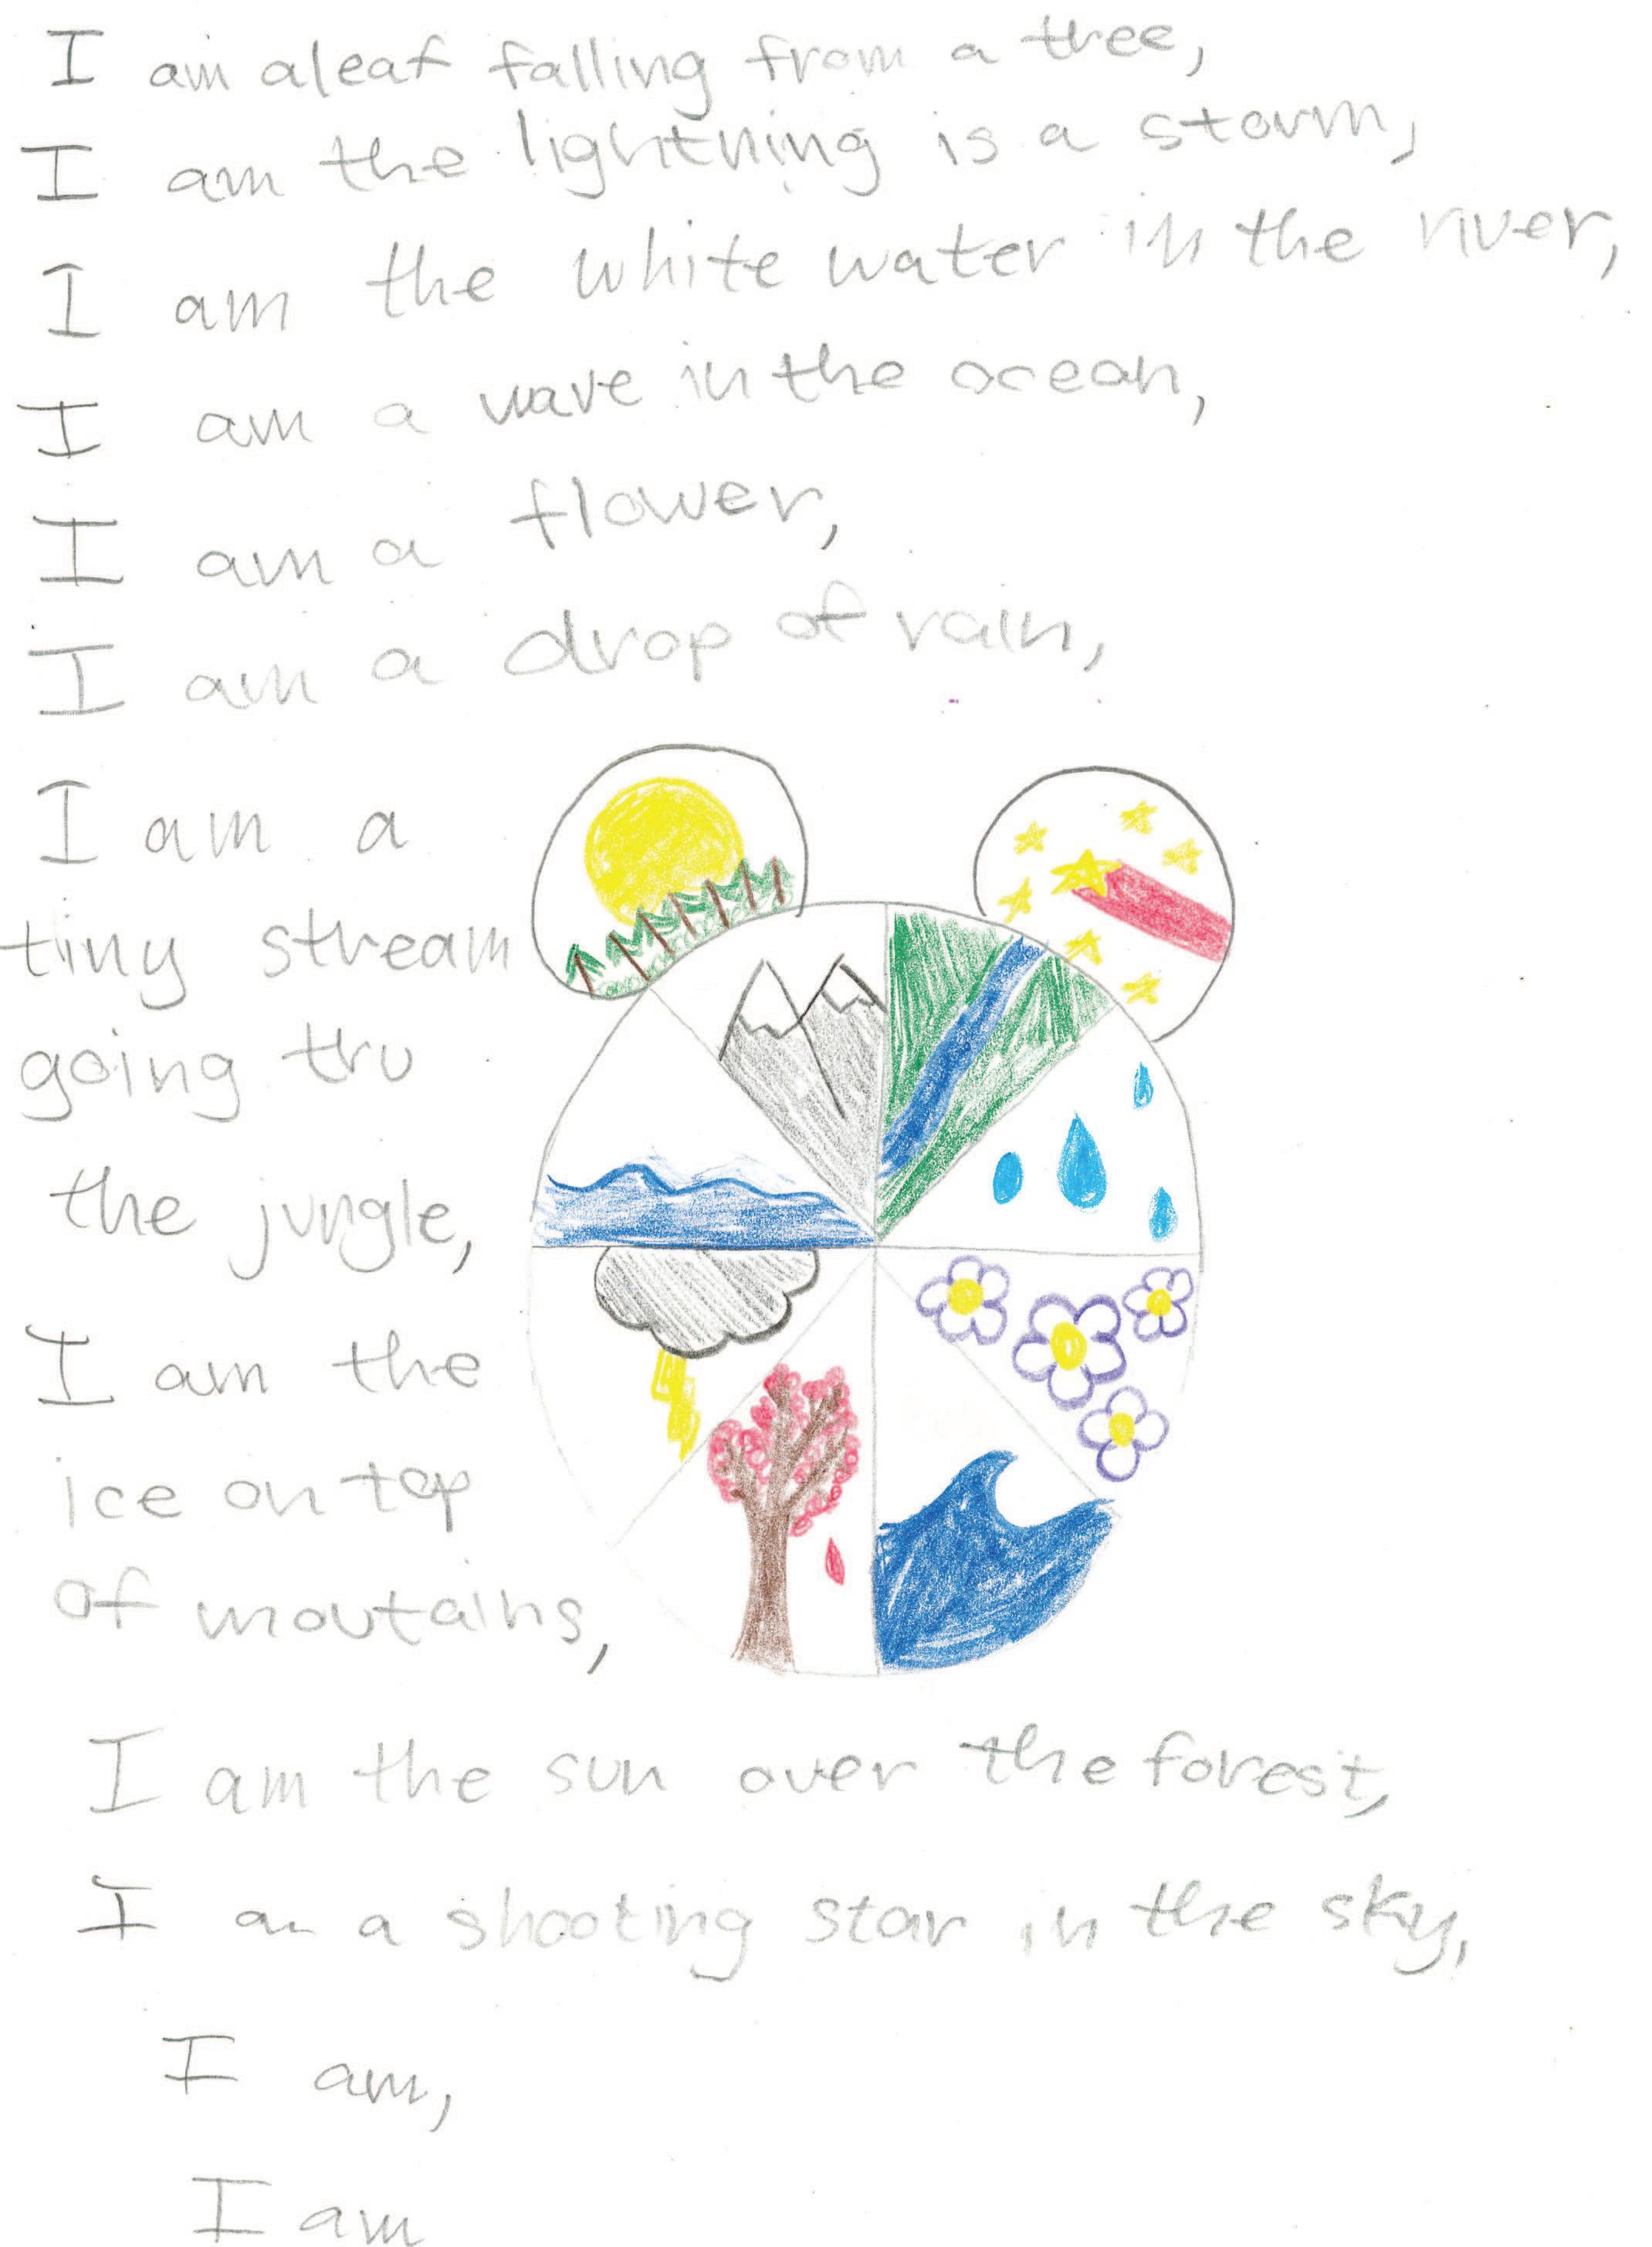 I am a leaf falling from a tree,
I am the lightning is a storm,
I am the white water in the river,
I am a wave in the ocean,
I am a flower,
I am a drop of rain,
I am a
tiny stream
going tru
the jungle,
I am the
ice on top
of moutains,
I am the sun over the forest,
I am a shooting star in the sky,
I am,
I am